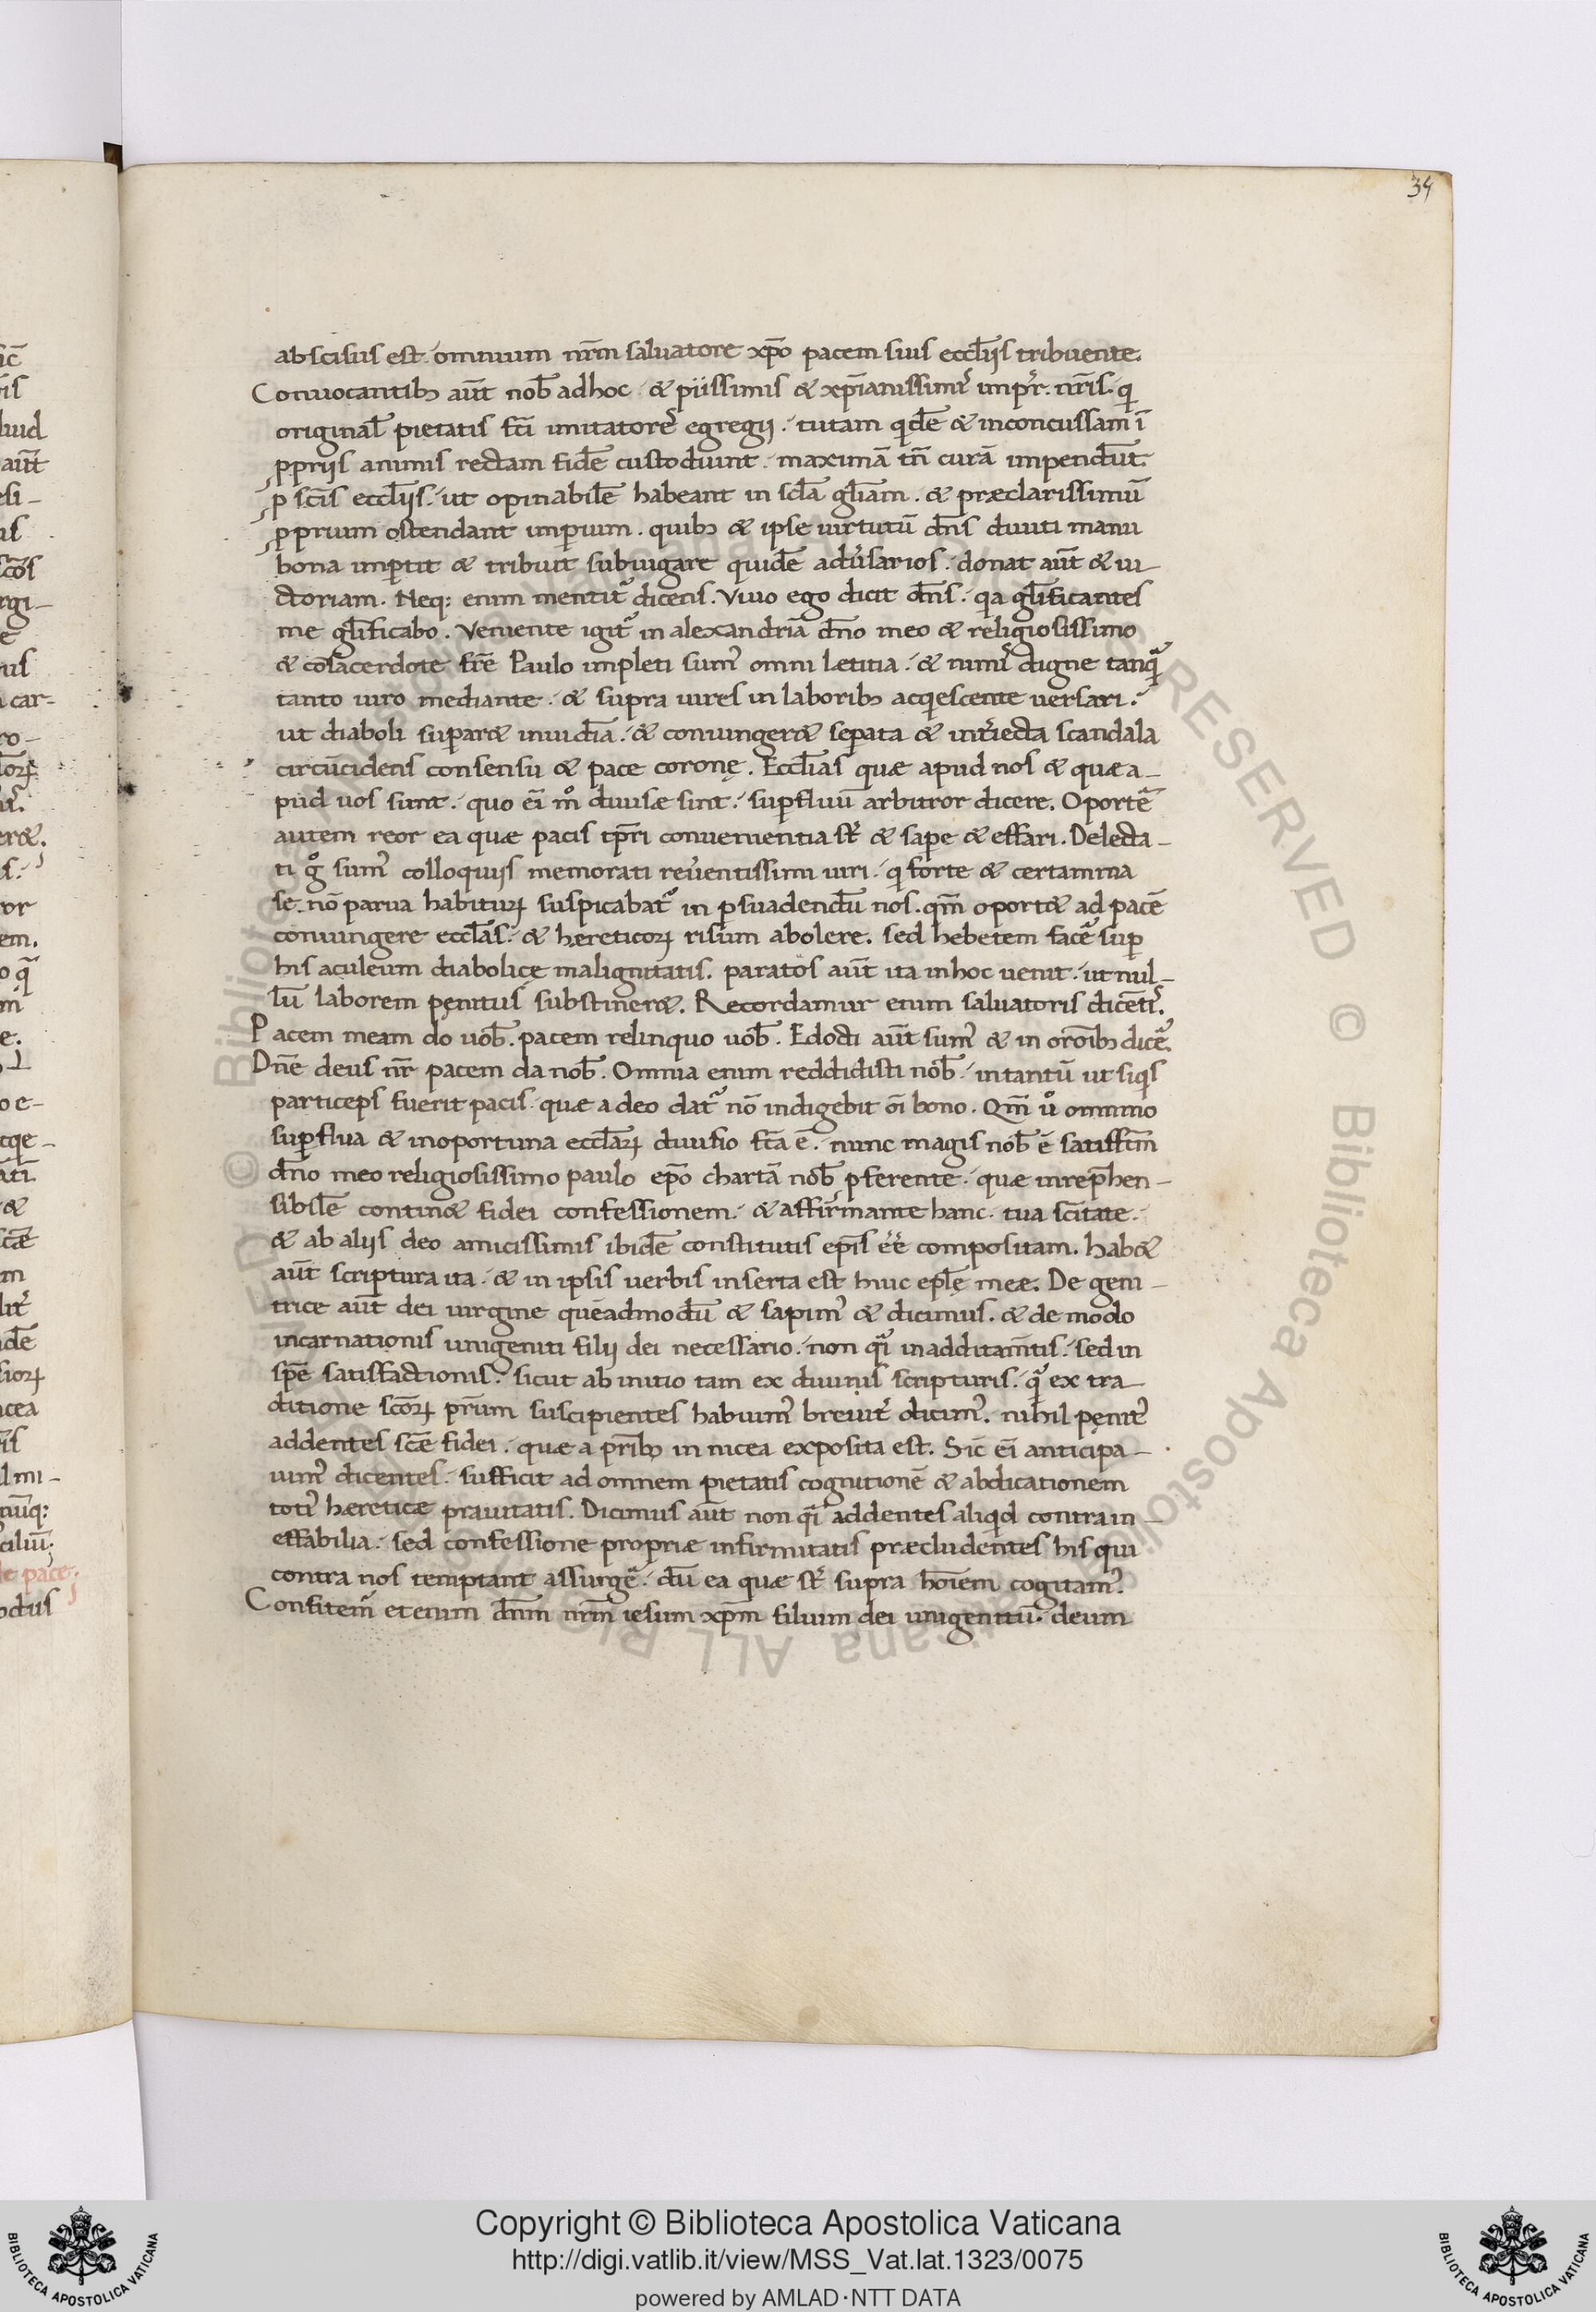 34
abscisus est. omnium nr̄m saluatore xp̄o pacem suis eccl̄iis tribuente.
Conuocantibꝫ aūt nob̄ adhoc. & piissimis & xp̄ianissimꝰ imp̄r. nr̄is. qi
original̄ pietatis fc̄i imitatoreꝰ egregij. tutam qidē & inconcussam ī
ꝓprijs animis rectam fidē custodiunt. maximā tn̄ curā impendūt.
ꝓ sc̄is eccl̄iis. ut opinabilē habeant in scl̄a gl̄iam. & præclarissimū
ꝓprium ostendant imꝑium. quibꝫ & ipse uirtutū dn̄s diuiti manu
bona imꝑtit & tribuit subiugare quidē aduersarios. donat aūt & ui-
ctoriam. Neqꝫ enim mentitᷓ dicens. Viuo ego dicit dn̄s. qia gl̄ificantes
me gl̄ificabo. Veniente igitᷓ in alexandriā dn̄o meo & religiosissimo
& cōsacerdote fr̄e Paulo impleti sumꝰ omni letitia. & nimiꝝ digne tanqᷓ
tanto uiro mediante. & supra uires in laboribꝫ acqiescente uersari.
ut diaboli suꝑar& inuidiā. & coniunger& seꝑata & int̉iecta scandala
circūcidens consensu & pace coronę. Eccl̄ias quæ apud nos & quæ a-
pud uos sunt. quo ei m̊ diuisæ sint. suꝑfluū arbitror dicere. Oportē
autem reor ea quæ pacis tp̄ri conuenientia st̄ & saꝑe & effari. Delecta-
ti g̊ sumꝰ colloquijs memorati reūentissimi uiri. qi forte & certamina
se nō parua habiturꝝ suspicabatᷓ in ꝑsuadendū nos. qm̄ oport& ad pacē
coniungere eccl̄as. & hereticoꝝ risum abolere. sed hebetem facē suꝑ
his aculeum diabolicę malignitatis. paratos aūt ita inhoc uenit. ut nul-
lū laborem pęnitus substiner&. Recordamur enim saluatoris dicētꝭ.
Pacem meam do uob̄. pacem relinquo uob̄. Edocti aūt sumꝰ & in or̄oibꝫ dicē.
Dn̄e deus nr̄ pacem da nob̄. Omnia enim reddidisti nob̄. intantū ut siqis
particeps fuerit pacis. quæ a deo datᷓ nō indigebit oi bono. Qm̄ ů omnino
suꝑflua & inoportuna eccl̄aꝝ diuisio fc̄a ē. nunc magis nob̄ ē satisfc̄m
dn̄o meo religiosissimo paulo ep̄o chartā nob̄ ꝓferente. quæ inrep̄hen-
sibilē contin& fidei confessionem. & affirmante hanc. tua sc̄itate.
& ab alijs deo amicissimis ibidē constitutis ep̄is e̅e̅ compositam. hab&
aūt scriptura ita. & in ipsis uerbis inserta est huic ep̄lę meæ. De geni-
trice aūt dei uirgine quēadmodū & sapimꝰ & dicimus. & de modo
incarnationis unigeniti filij dei necessario. non qᷓi inadditam̄tis. sed in
spē satisfactionis. sicut ab initio tam ex diuinis scripturis. qᷓ ex tra-
ditione sc̄oꝝ pr̄um suscipientes habuimꝰ breuit̉ dicimꝰ. nihil pęnitꝰ
addentes sc̄e fidei. quæ a pr̄ibꝫ in nicea exposita est. Sic̄ ei anticipa-
uimꝰ dicentes. sufficit ad omnem pietatis cognitionē & abdicationem
totiꝰ hereticæ prauitatis. Dicimus aūt non qᷓi addentes aliqid contra in-
effabilia. sed confessione propriæ infirmitatis præcludentes his qui
contra nos temptant assurgē. dū ea quæ st̄ supra hoīem cogitamꝰ.
Confitemꝰ etenim dn̄m nr̄m iesum xp̄m filium dei unigenitū. deum
Copyright © Biblioteca Apostolica Vaticana
http://digi.vatlib.it/view/MSS_Vat.lat.1323/0075
powered by AMLAD·NTT DATA